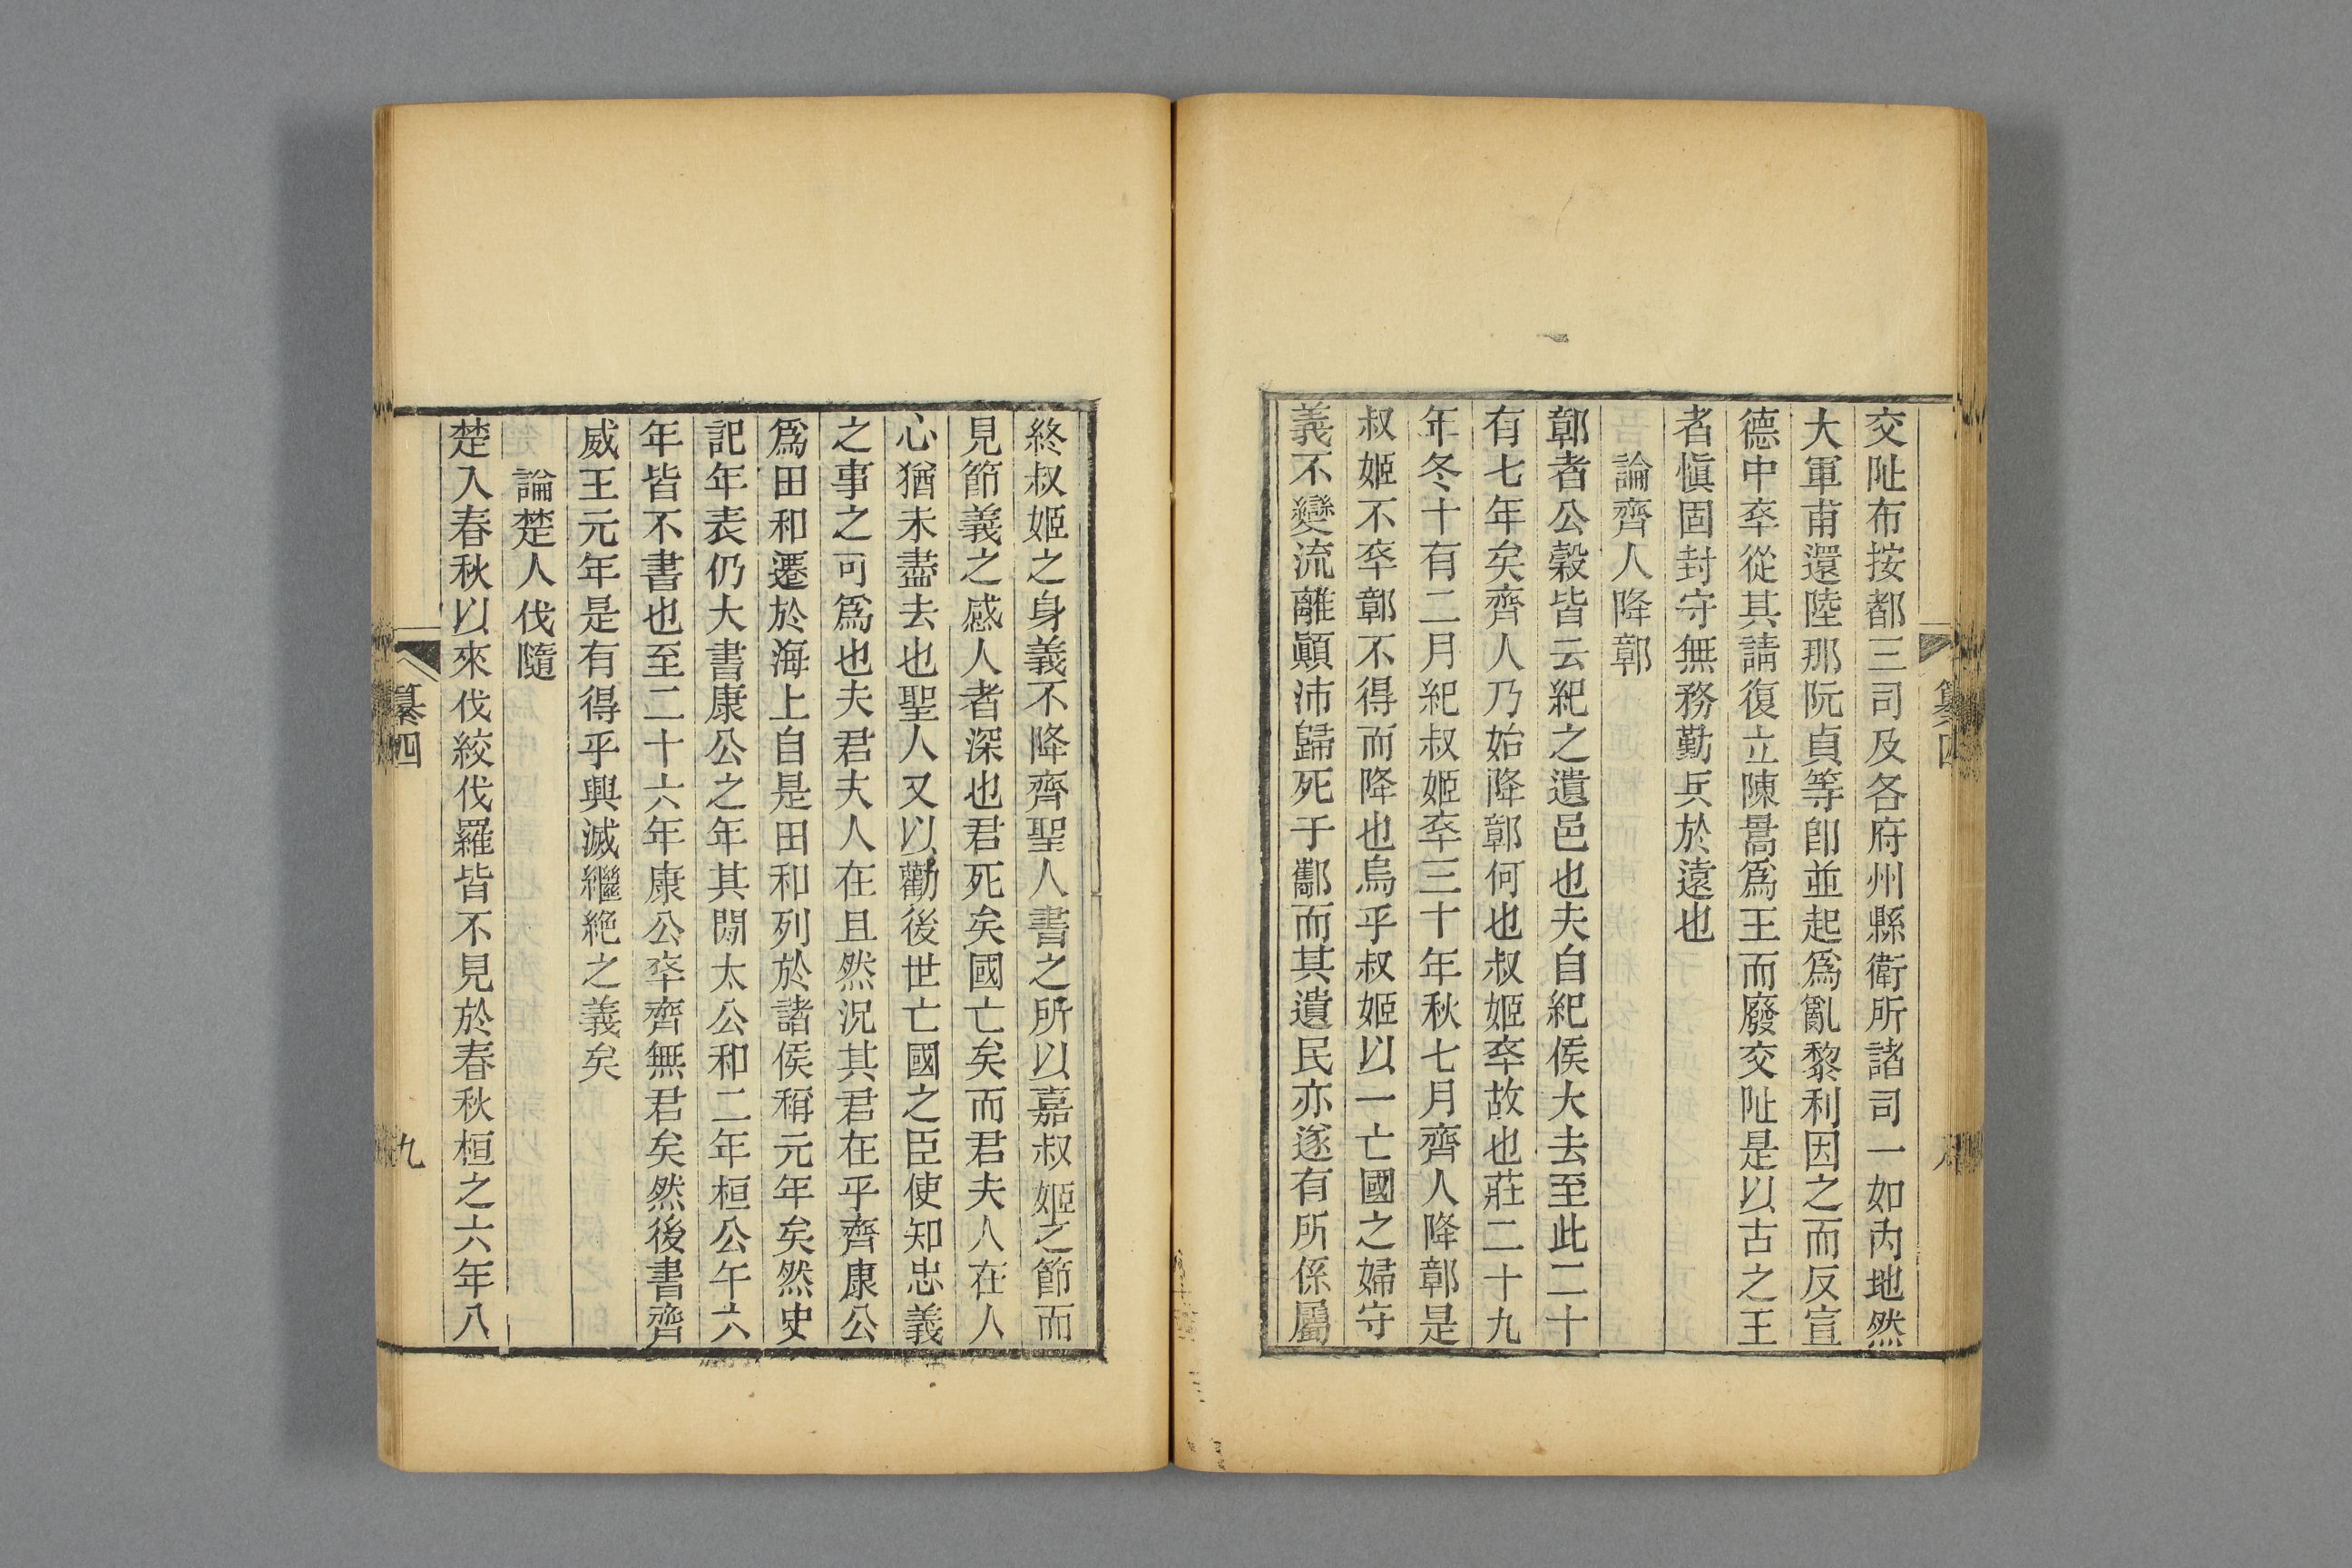 交阯布按都三司及各府州縣衛所諸司一如內地然
大軍甫還陸那阮貞等卽並起爲亂黎利因之而反宣
德中卒從其請復立陳暠爲王而廢交阯是以古之王
者慎固封守無務勤兵於遠也
論齊人降鄣
鄣者公穀皆云紀之遺邑也夫自紀侯大去至此二十
有七年矣齊人乃始降鄣何也叔姬卒故也莊二十九
年冬十有二月紀叔姬卒三十年秋七月齊人降鄣是
叔姬不卒鄣不得而降也烏乎叔姬以一亡國之婦守
義不變流離顚沛歸死于酅而其遺民亦遂有所係屬
終叔姬之身義不降齊聖人書之所以嘉叔姬之節而
見節義之感人者深也君死矣國亡矣而君夫人在人
心猶未盡去也聖人又以勸後世亡國之臣使知忠義
之事之可爲也夫君夫人在且然況其君在乎齊康公
爲田和遷於海上自是田和列於諸侯稱元年矣然史
記年表仍大書康公之年其閒太公和二年桓公午六
年皆不書也至二十六年康公卒齊無君矣然後書齊
威王元年是有得乎興滅繼絕之義矣
論楚人伐隨
楚入春秋以來伐絞伐羅皆不見於春秋桓之六年八
纂四
九